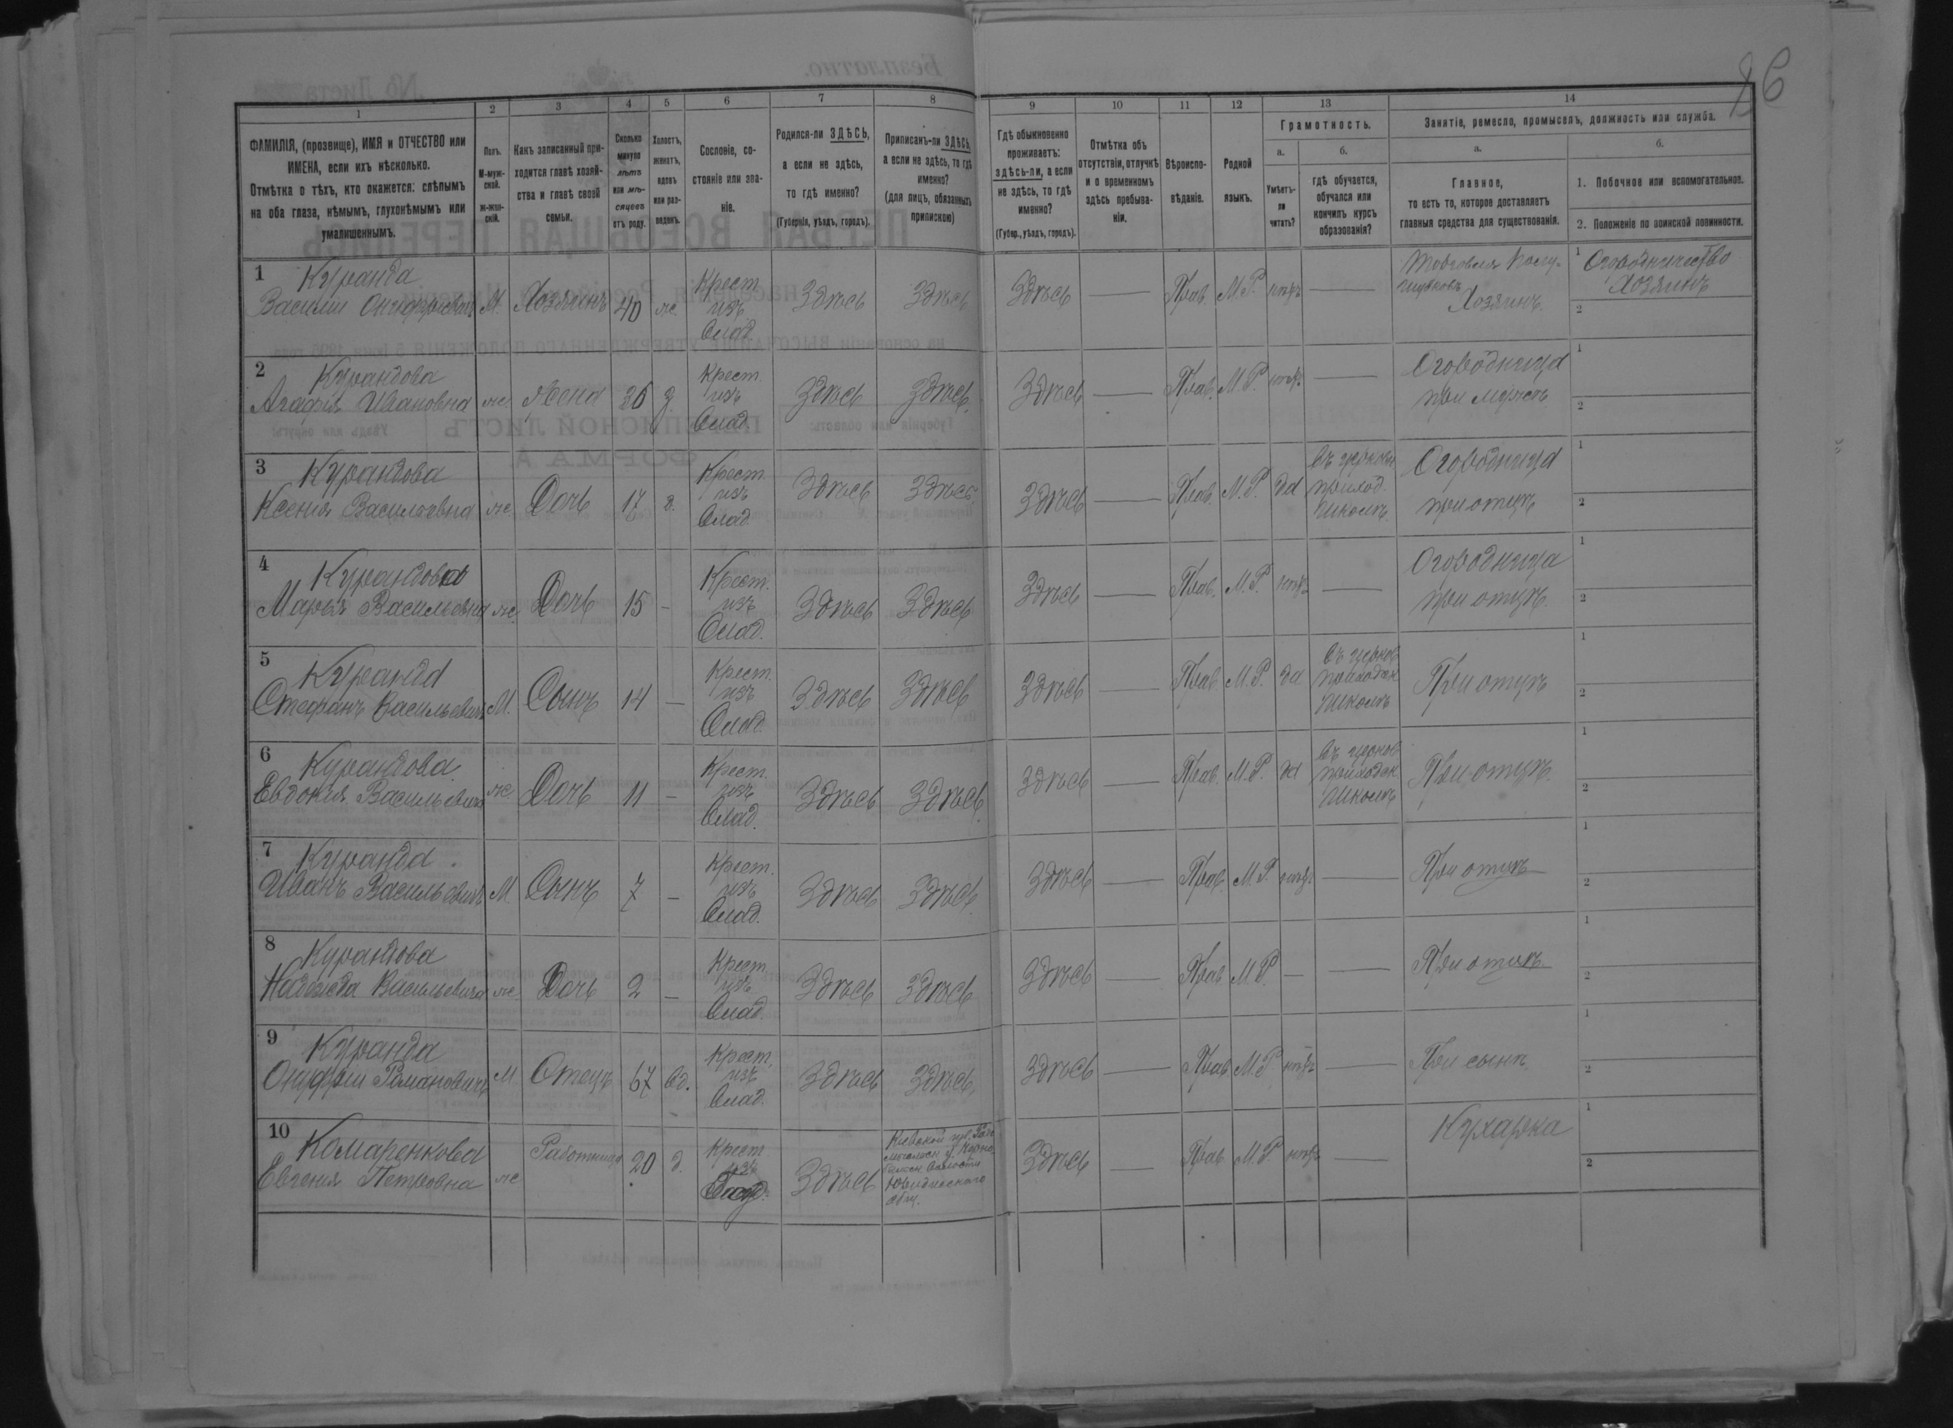 86
1 2 3 4 5 6 7 8 9 10 11 12 13 14
ФАМИЛІЯ, (прозвище), ИМЯ и ОТЧЕСТВО или
ИМЕНА, если ихъ нѣсколько.
Отмѣтка о тѣхъ, кто окажется: слѣпымъ
на оба глаза, нѣмымъ, глухонѣмымъ или
умалишеннымъ.
Полъ.
М-муж-
ской.
ж-жен-
скій.
Какъ записанный при-
ходится главѣ хозяй-
ства и главѣ своей
семьи.
Сколько
минуло
лѣтъ
или мѣ-
сяцевъ
отъ роду.
Холостъ,
женатъ,
вдовъ
или раз-
веденъ.
Сословіе, со-
стояніе или зва-
ніе.
Родился-ли ЗДѢСЬ,
а если не здѣсь,
то гдѣ именно?
(Губернія, уѣздъ, городъ).
Приписанъ-ли ЗДѢСЬ,
а если не здѣсь, то гдѣ
именно?
(для лицъ, обязанныхъ
припискою)
Гдѣ обыкновенно
проживаетъ:
здѣсь-ли, а если
не здѣсь, то гдѣ
именно?
(Губер., уѣздъ, городъ).
Отмѣтка объ
отсутствіи, отлучкѣ
и о временномъ
здѣсь пребыва-
ніи.
Вѣроиспо-
вѣданіе.
Родной
языкъ.
Грамотность.
а.
Умѣетъ-
ли
читать?
б.
гдѣ обучается,
обучался или
кончилъ курсъ
образованія?
Занятіе, ремесло, промыселъ, должность или служба.
а.
Главное,
то есть то, которое доставляетъ
главныя средства для существованія.
б.
1. Побочное или вспомогательное.
2. Положеніе по воинской повинности.
1 Куранда
Василій Онуфріевичъ М. Хозяинъ 40 ж. Крест. изъ Влад. Здѣсь Здѣсь Здѣсь — Прав. М.Р. нѣтъ —
Хозяинъ.
1 Огородничество
Хозяинъ
2
2 Курандова
Агафія Ивановна ж. Жена 36 з. Крест. изъ Влад. Здѣсь Здѣсь. Здѣсь — Прав. М.Р. нѣтъ —
Огородница
при мужѣ
1
2
3 Курандова
Ксенія Васильевна ж. Дочь 17 д. Крест. изъ Влад. Здѣсь Здѣсь Здѣсь — Прав. М.Р. да
въ церковн
приход.
школѣ
Огородница
при отцѣ
1
2
4 Курандова
Марія Васильевна ж. Дочь 15 — Крест. изъ Влад. Здѣсь Здѣсь Здѣсь — Прав. М.Р. нѣтъ —
Огородница
при отцѣ.
1
2
5 Куранда
Стефанъ Васильевичъ М. Сынъ 14 — Крест. изъ Влад. Здѣсь Здѣсь Здѣсь — Прав. М.Р. да
въ церков
приходск
школѣ
При отцѣ
1
2
6 Курандова
Евдокія Васильевна ж. Дочь 11 — Крест. изъ Влад. Здѣсь Здѣсь. Здѣсь — Прав. М.Р. да
въ церков
приходск
школѣ
При отцѣ
1
2
7 Куранда.
Иванъ Васильевичъ М Сынъ 7 — Крест. изъ Влад. Здѣсь Здѣсь Здѣсь — Прав. М.Р нѣтъ —
При отцѣ
1
2
8 Курандова
Надежда Васильевна ж. Дочь 2 — Крест. изъ Влад. Здѣсь Здѣсь Здѣсь — Прав. М.Р. — —
При отцѣ
1
2
9 Куранда
Онуфрій Романовичъ М Отецъ 67 вд. Крест. изъ Влад. Здѣсь Здѣсь, Здѣсь — Прав М.Р нѣтъ —
При сынѣ
1
2
10 Комаренкова
Евгенія Петровна ж. Работница 20 д. Крест. изъ Здѣсь
Кіевской губ.
Здѣсь — Прав. М.Р нѣтъ —
Кухарка
1
2